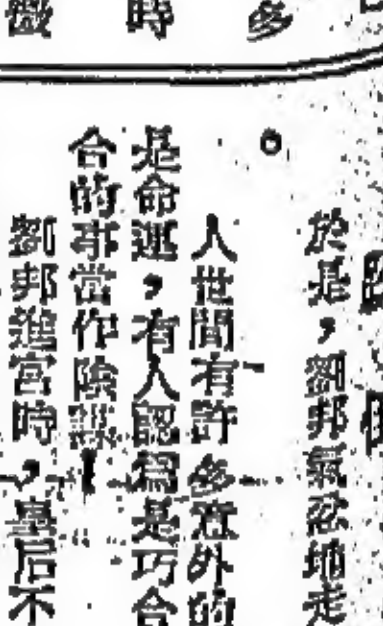 多
時
於是，劉邦氣忿地走
。
人世間有許多意外的
是命運，有人認爲是巧合
合的事當作陰謀！
劉邦進宮時，皇后不